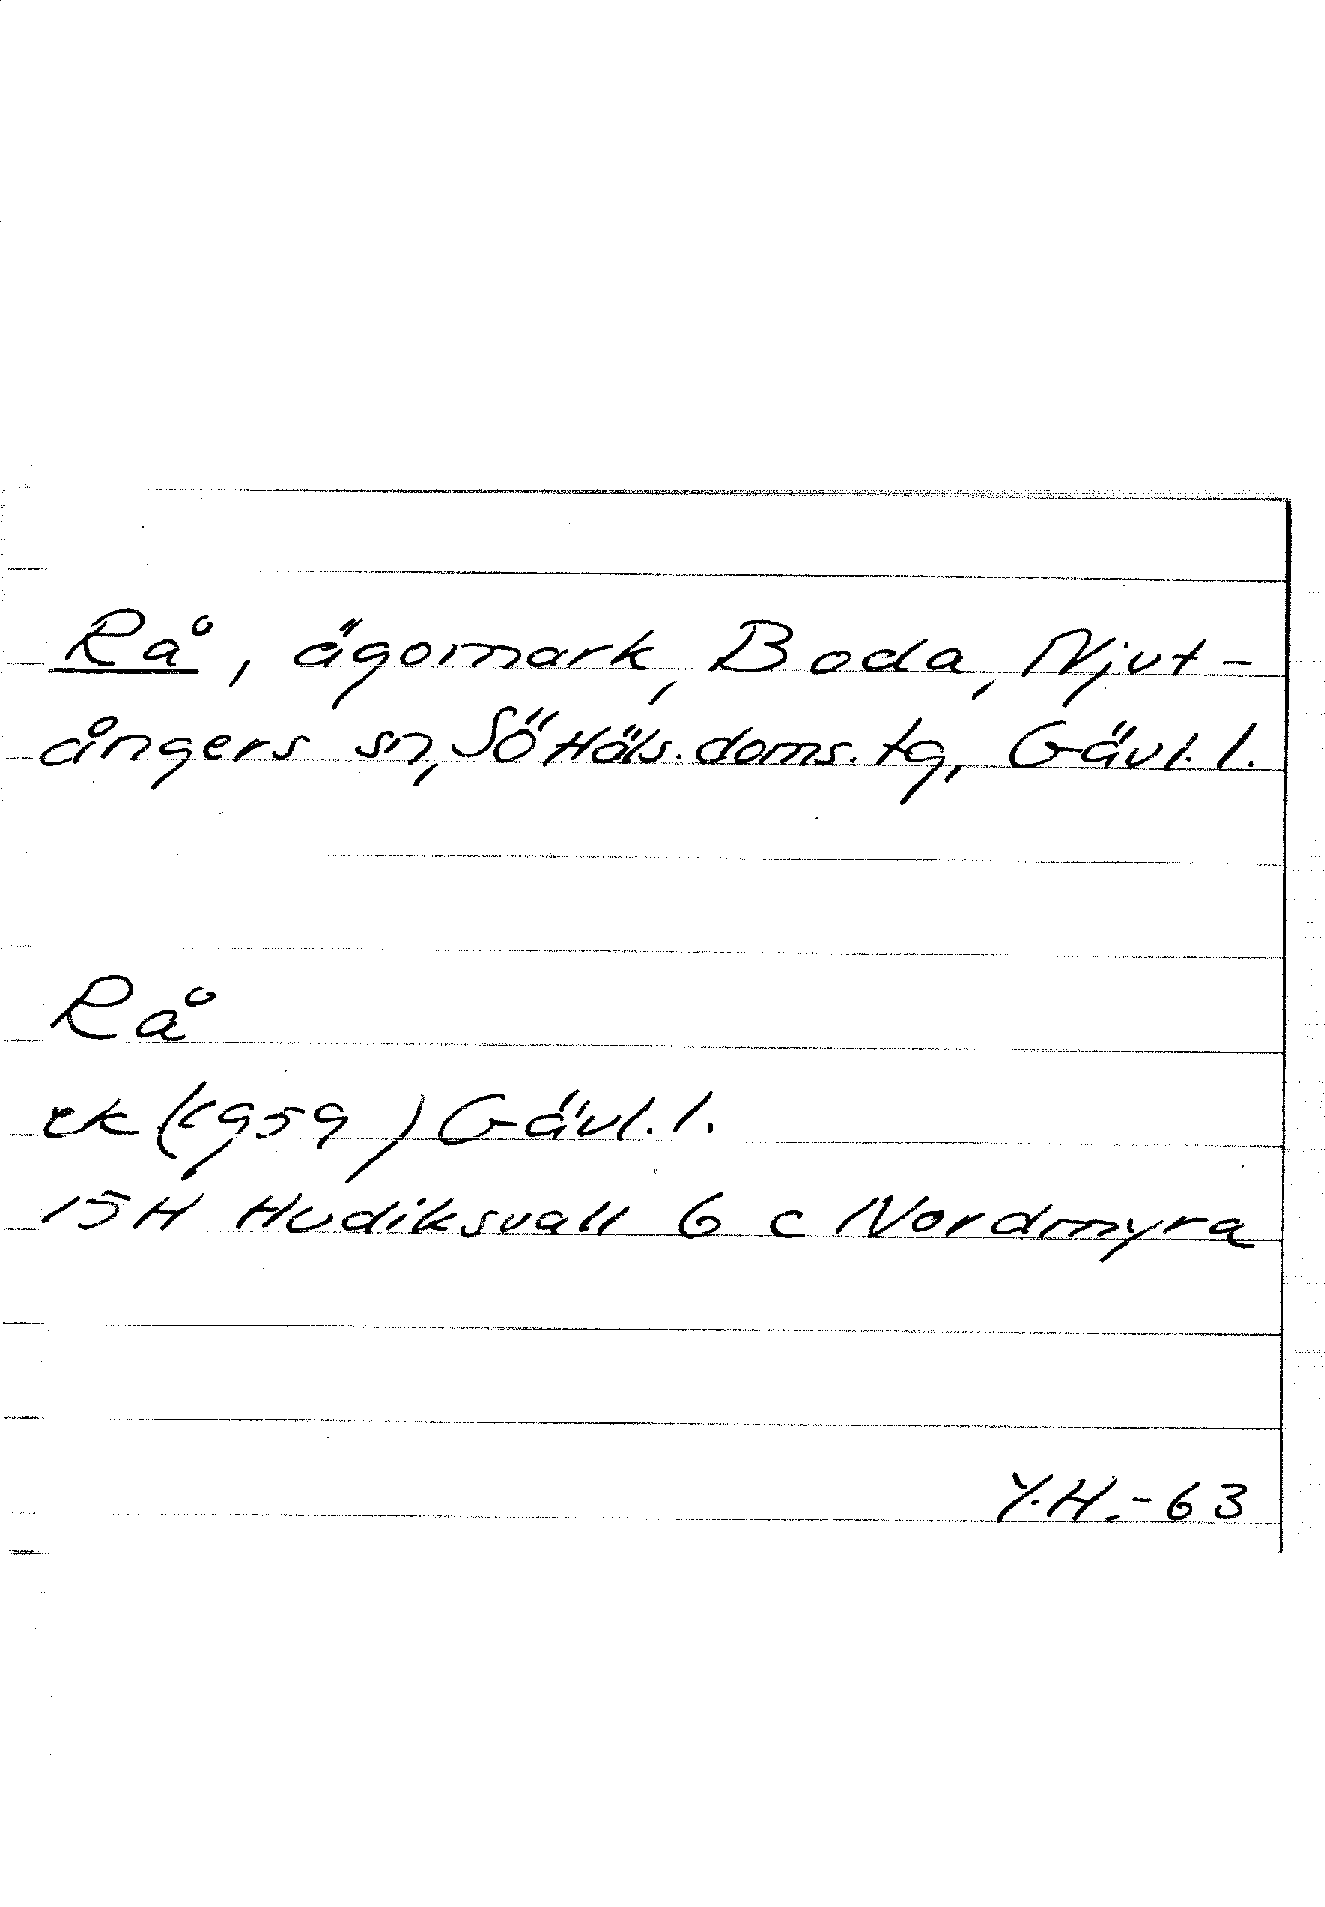 Rå, ägomark, Boda, Njut-
ångers sn, Sö Häls. doms. tg, Gävl. l.
Rå
ek (1959) Gävl. l.
15H Hudiksvall 6 c Nordmyra
Y.H.-63